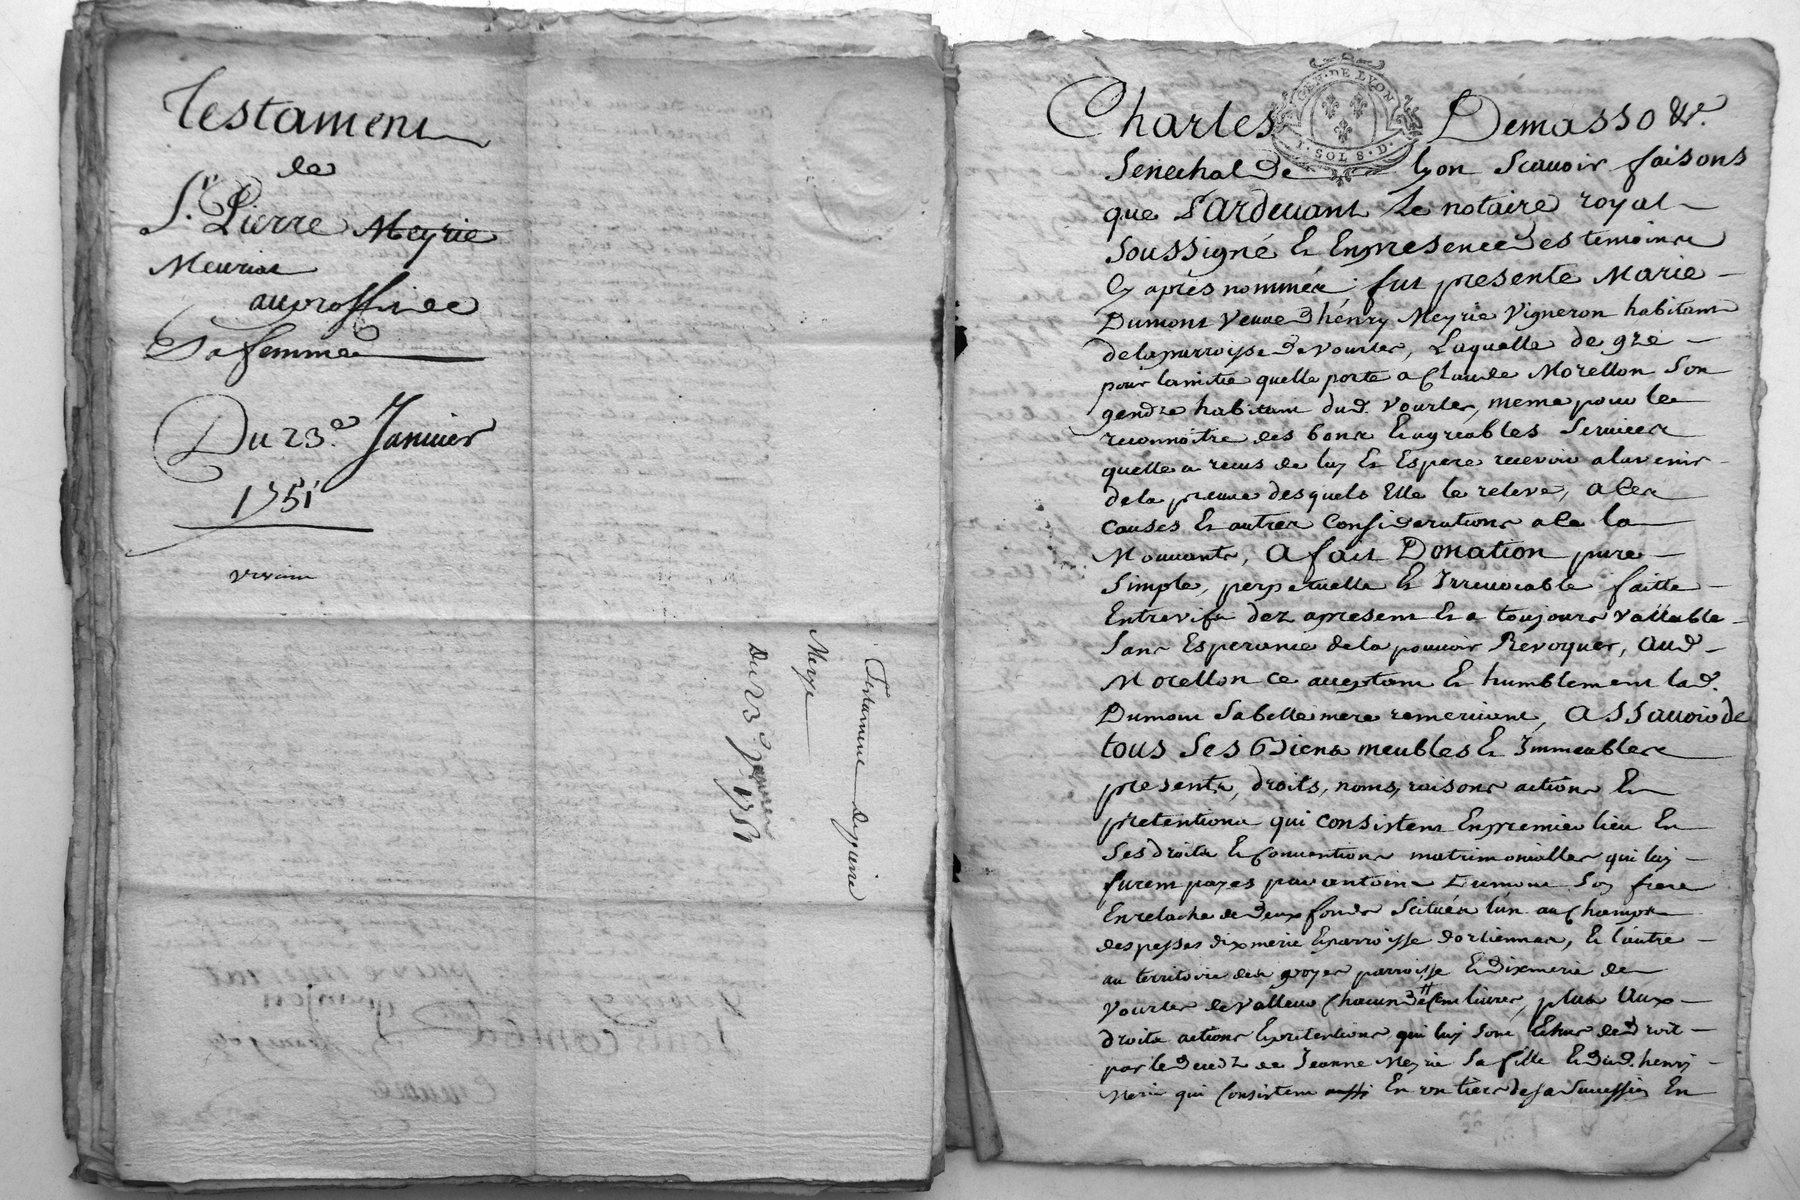 Testament
de
Sr. Pierre Meyrie
Meurier
au proffit de
Sa femme
Du 23e. Janvier
1751
Testament de pierre
Meyre
Du 23e Janvier
1751
GEN. DE LYON
I. SOL 8. D.
Charles Demasso &c.
Senechal de Lyon Scavoir faisons
que Pardevant Le notaire royal
soussigné Et Enpresence des temoins
Cy aprés nommés fut presente Marie
Dumont Veuve d'hénry Meyrie Vigneron habitant
de la parroisse de vourles, Laquelle de gré
pour lamitié quelle porte a Claude Morellon Son
gendre habitant dud. Vourles, meme pour le
reconnoitre des bons Et agréables Services
quelle a reçus de luy Et Espere recevoir alavenir
de la preuve desquels Elle le releve, a ces
causes Et autres Considerations a ce la
Mouvants, a fait Donation pure
Simple, perpetuelle Et Irrevocable faitte
Entrevifs dez apresent Et a toujours vallable
Sans Esperance de la pouvoir Revoquer, aud.
Morellon ce acceptant Et humblement lad.
Dumont Sa belle mere remerciant, assavoir de
tous Ses Biens meubles Et Immeubles
presents, droits, noms, raisons actions Et
pretentions qui consistent Enpremier lieu En
Ses droits Et Conventions matrimonialles qui luy
furent payes par antoine Dumont Son frere
En relache de deux fonds Scitués lun au Champ
des pesses dixmerie Et parroisse dorliennas, Et l'autre
au territoire des groyes parroisse Et dixmerie de
Vourles de valleur Chacun de Cent livres, plus Aux
droits actions Et pretentions qui luy sont Echus de droit
par le deced de Jeanne Meyrie Sa fille Et dud. henri
Meirie qui Consistent aussi En un tiers de sa Succession En